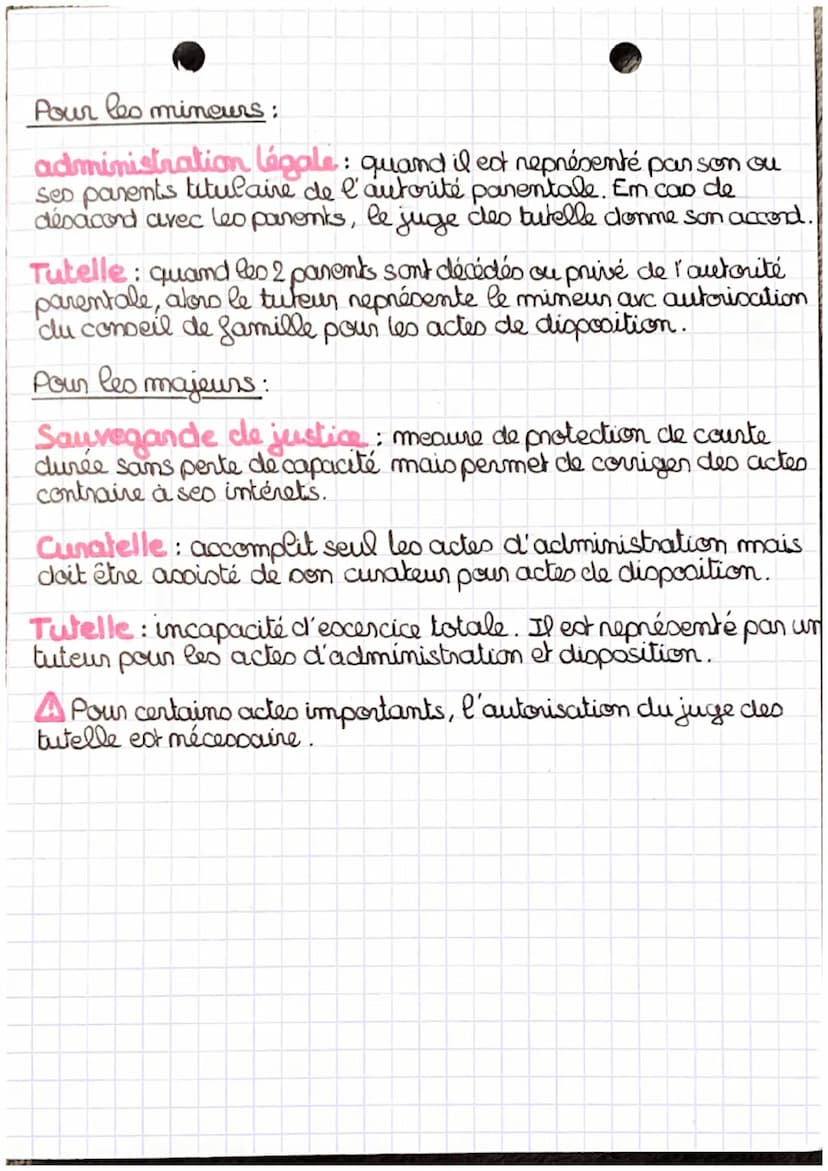 Pour les mineurs :
administration légale : quand il est représenté par son ou
ses parents titulaire de l'autorité parentale. En cas de
désacord avec les parents, le juge des tutelle donne son accord.
Tutelle : quand les 2 parents sont décédés ou privé de l'autorité
parentale, alors le tuteur représente le mineur avc autorisation
du conseil de famille pour les actes de disposition.
Pour les majeurs :
Sauvegarde de justice : mesure de protection de courte
durée sans perte de capacité mais permet de corriger des actes
contraire à ses intérets.
Curatelle : accomplit seul les actes d'administration mais
doit être assisté de son curateur pour actes de disposition.
Tutelle : incapacité d'excercice totale. Il est représenté par un
tuteur pour les actes d'administration et disposition.
⚠ Pour certains actes importants, l'autorisation du juge des
tutelle est nécessaire.